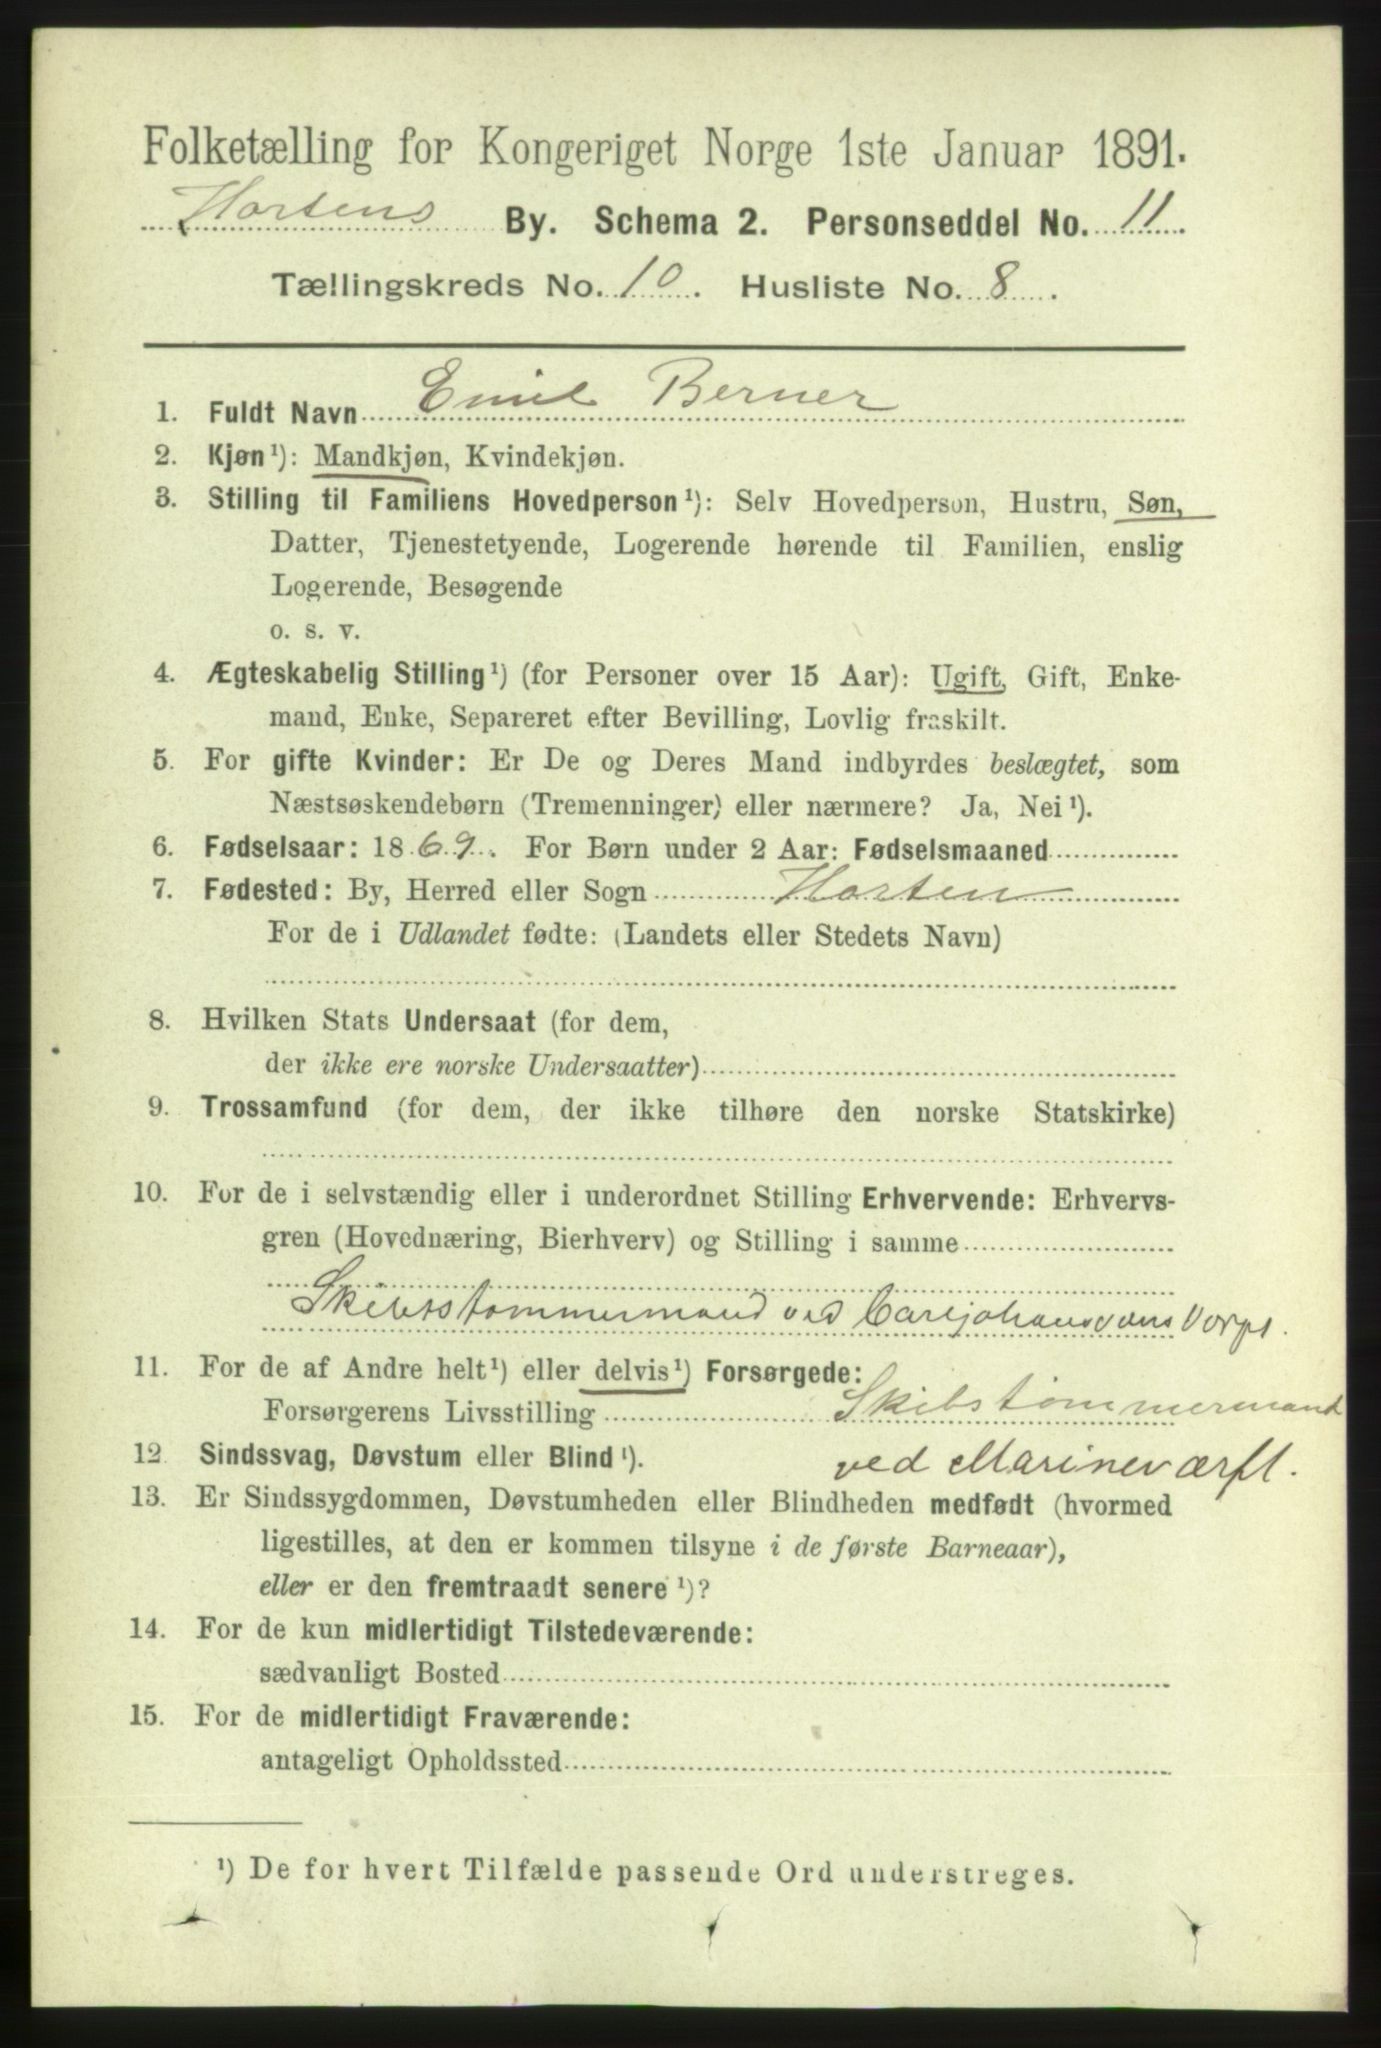 Folketælling for Kongeriget Norge 1ste Januar 1891.
Hortens By. Schema 2. Personseddel No. 11
Tællingskreds No. 10. Husliste No. 8.
1. Fuldt Navn Emil Berner
2. Kjøn¹): Mandkjøn, Kvindekjøn.
3. Stilling til Familiens Hovedperson¹): Selv Hovedperson, Hustru, Søn,
Datter, Tjenestetyende, Logerende hørende til Familien, enslig
Logerende, Besøgende
o. s. v.
4. Ægteskabelig Stilling¹) (for Personer over 15 Aar): Ugift, Gift, Enke-
mand, Enke, Separeret efter Bevilling, Lovlig fraskilt.
5. For gifte Kvinder: Er De og Deres Mand indbyrdes beslægtet, som
Næstsøskendebørn (Tremenninger) eller nærmere? Ja, Nei¹).
6. Fødselsaar: 1869. For Børn under 2 Aar: Fødselsmaaned
7. Fødested: By, Herred eller Sogn Horten
For de i Udlandet fødte: (Landets eller Stedets Navn)
8. Hvilken Stats Undersaat (for dem,
der ikke ere norske Undersaatter)
9. Trossamfund (for dem, der ikke tilhøre den norske Statskirke)
10. For de i selvstændig eller i underordnet Stilling Erhvervende: Erhvervs-
gren (Hovednæring, Bierhverv) og Stilling i samme
Skibstømmermand ved Carljohansværns
11. For de af Andre helt¹) eller delvis¹) Forsørgede:
Forsørgerens Livsstilling Skibstømmermand
12. Sindssvag, Døvstum eller Blind¹). ved Marineværft.
13. Er Sindssygdommen, Døvstumheden eller Blindheden medfødt (hvormed
ligestilles, at den er kommen tilsyne i de første Barneaar),
eller er den fremtraadt senere¹)?
14. For de kun midlertidigt Tilstedeværende:
sædvanligt Bosted
15. For de midlertidigt Fraværende:
antageligt Opholdssted
¹) De for hvert Tilfælde passende Ord understreges.